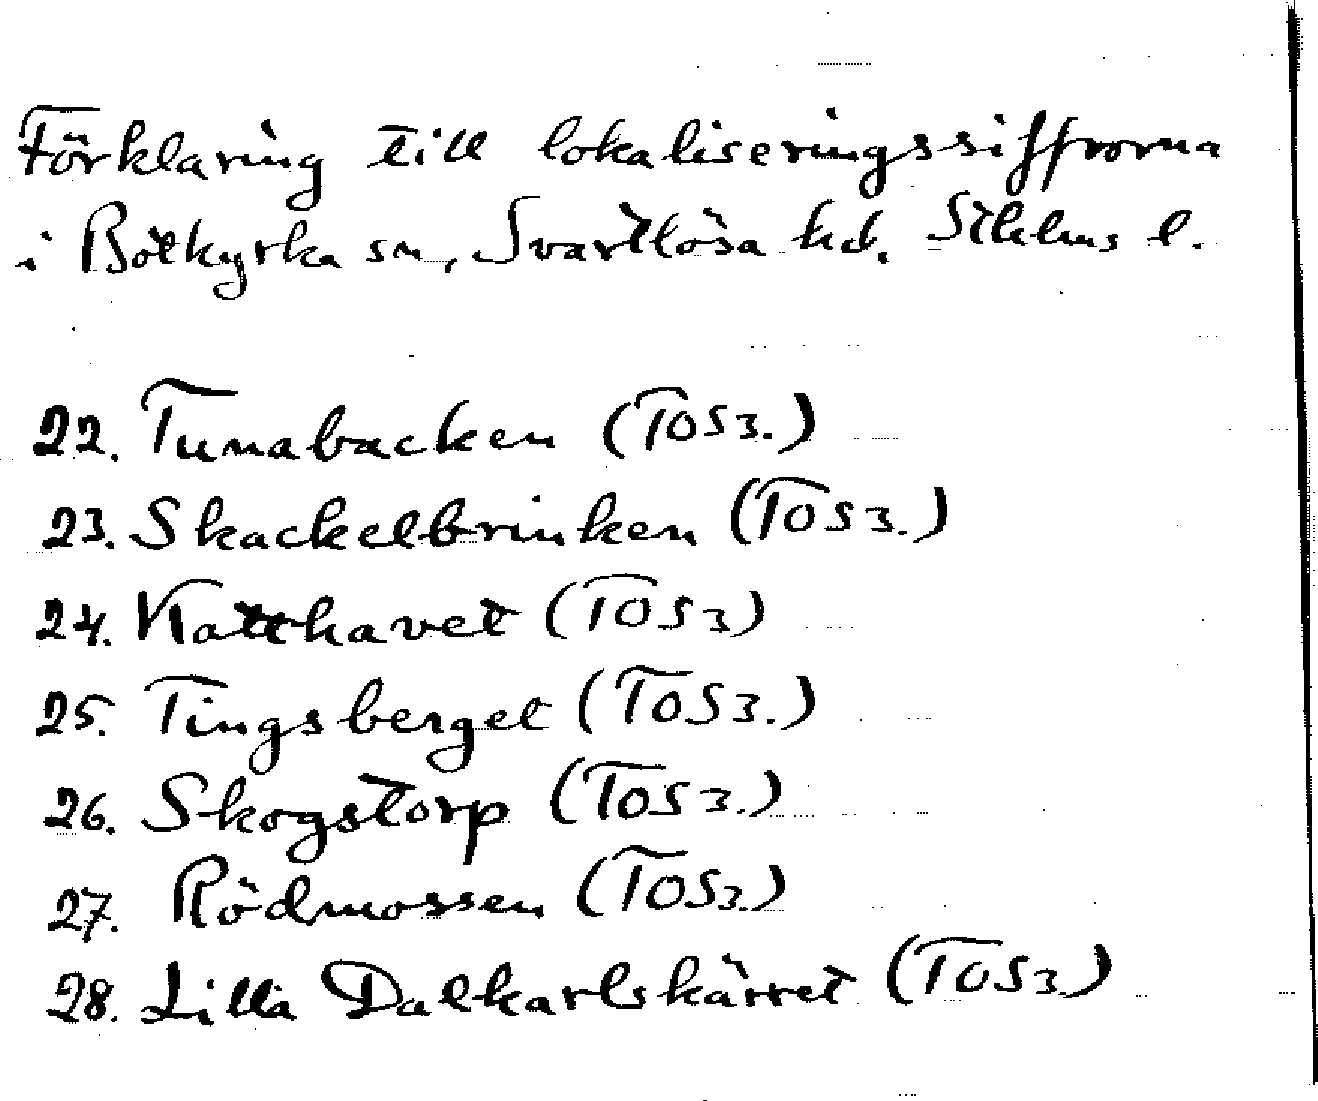 Förklaring till lokaliseringssiffrorna
i Botkyrka sn, Svartlösa hd. Sthlms l.
22. Tunabacken (TOS3.)
23. Skackelbrinken (TOS3.)
24. Katthavet (TOS3)
25. Tingsberget (TOS3.)
26. Skogstorp (TOS3.)
27. Rödmossen (TOS3.)
28. Lilla Dalkarlskärret (TOS3)